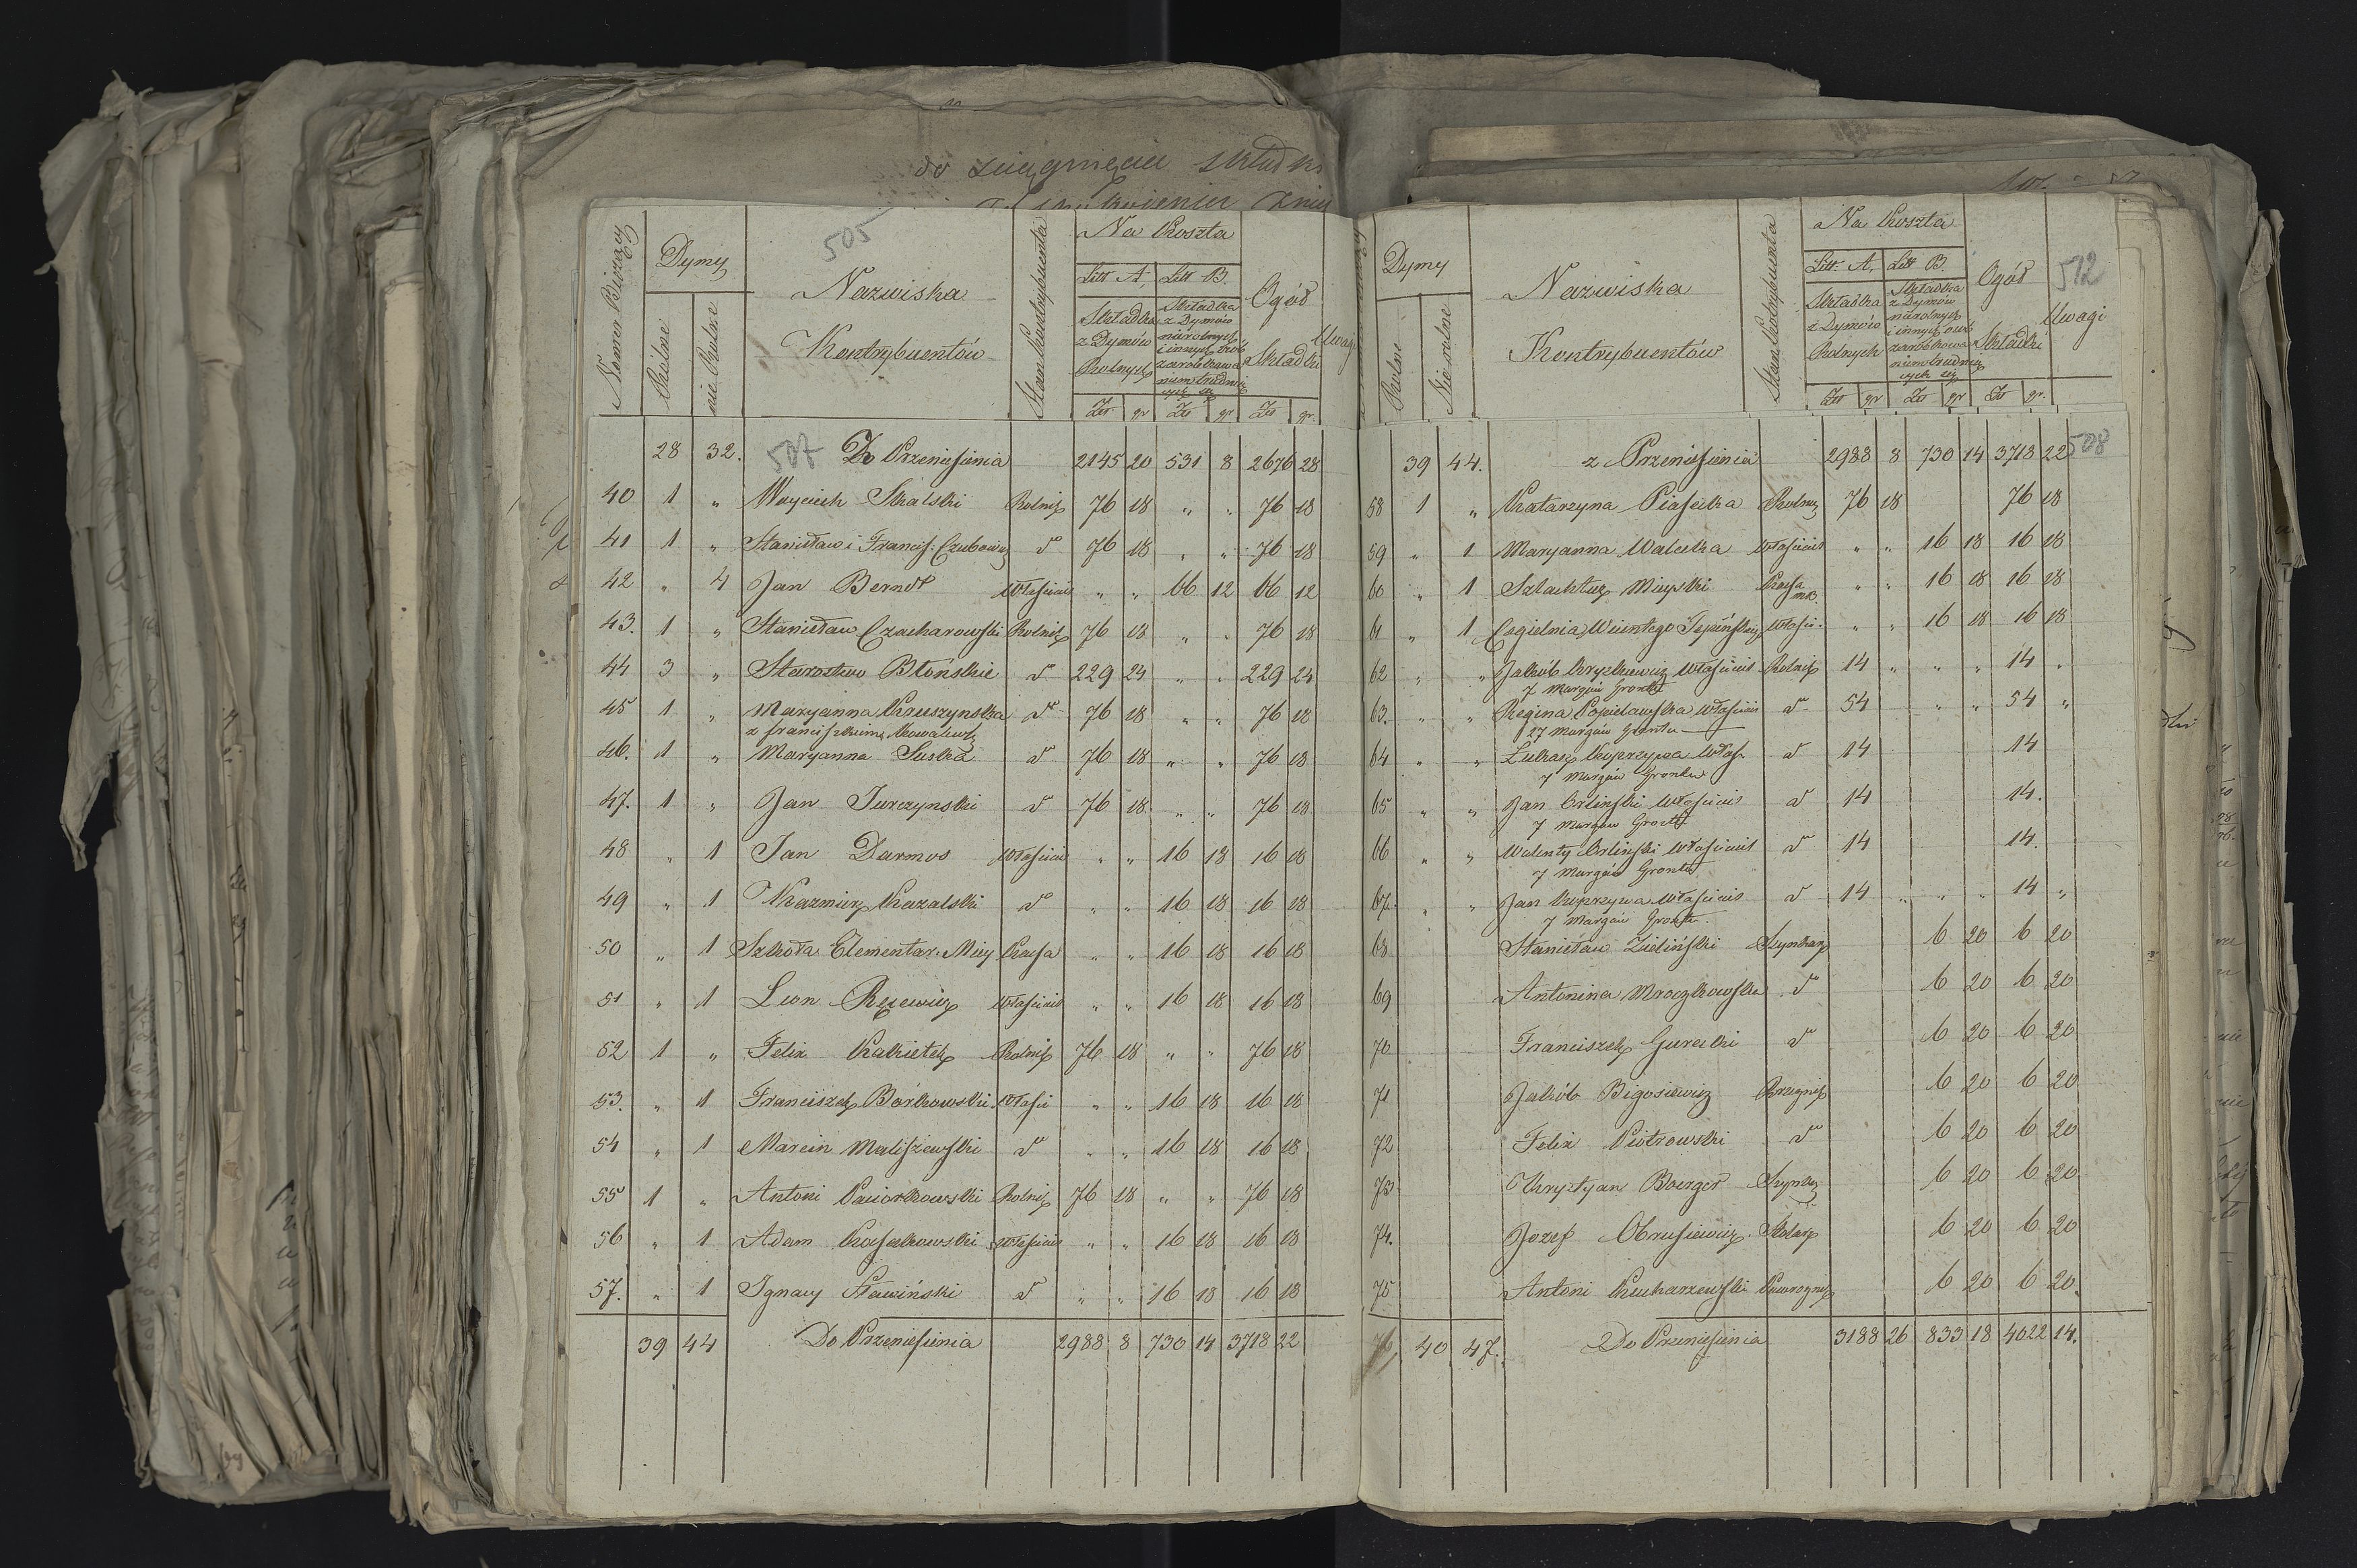 do zciągnięcia składki
Numer Bieżący
Dymy
Rolne
nie Rolne
505
Nazwiska
Kontrybuentów
Stan Kontrybuenta
Na Koszta
Litt A. Litt B.
Składka z Dymów Rolnych
Składka z Dymów nierolnych i innych osób zarobkowaniem trudniących się
Ogół Składki
Uwagi
Zł gr Zł gr Zł gr.
28 32. 507 Do Przeniesienia 2145 20 531 8 2676 28
40 1 " Woyciech Skalski Rolnik 76 18 " " 76 18
41 1 " Stanisław i Francis. Czubowicz d° 76 18 " " 76 18
42 " 4 Jan Berndt Właściciel " " 66 12 66 12
43. 1 " Stanisław Czacharowski Rolnik 76 18 " " 76 18
44 3 " Starostwo Błońskie d° 229 24 " " 229 24
45 1 " Maryanna Kruszynska d° 76 18 " " 76 18
z Franciszkiem Kowalewsk
46. 1 " Maryanna Suska d° 76 18 " " 76 18
47. 1 " Jan Jurczynski d° 76 18 " " 76 18
48 " 1 Jan Darmos Właściciel " " 16 18 16 18
49 " 1 Kazmierz Kazalski d° " " 16 18 16 18
50 " 1 Szkoła Elementar. Miey Kassa " " 16 18 16 18
51 " 1 Leon Rezewicz Właściciel " " 16 18 16 18
52 1 " Felix Kakietek Rolnik 76 18 " " 76 18
53. " 1 Franciszek Borkowski Właści " " 16 18 16 18
54 " 1 Marcin Maliszewski d° " " 16 18 16 18
55 1 " Antoni Paciorkowski Rolnik 76 18 " " 76 18
56 " 1 Adam Kossakowski Właściciel " " 16 18 16 18
57. " 1 Ignacy Sławiński d° " " 16 18 16 18
39 44 Do Przeniesienia 2988 8 730 14 3718 22
Dymy
Rolne
Nie rolne
Nazwiska
Kontrybuentów
Stan Kontrybuenta
Na Koszta
Litt. A. Litt B.
Składka z Dymów Rolnych
Składka z Dymów nierolnych i innych osób zarobkowaniem trudniących się
Ogół Składki
512
Uwagi
Zł gr Zł gr Zł gr.
39 44. z Przeniesienia 2988 8 730 14 3718 22 508
58 1 " Katarzyna Piasecka Rolnik 76 18 76 18
59 " 1 Maryanna Walecka Właściciel " " 16 18 16 18
60 " 1 Szlachtuz Mieyski Kassa " " 16 18 16 18
61 " 1 Cegielnia Wincentego Tepińskiego Właści. " " 16 18 16 18
62 " " Jakób Kryszkiewicz Właściciel Rolnik 14 " " " 14 "
7 Morgów Gronta
63. " " Regina Popielawska Właściciel d° 54 " " 54 "
27 Morgów Gruntu
64 " " Łukasz Kuprzywa Właś. d° 14 14
7 Morgów Gronta
65 " " Jan Orlinski Właściciel d° 14 14.
7 Morgów Gronta
66 " " Walenty Orlinski Właściciel d° 14 14.
7 Morgów Gronta
67. " " Jan Kuprzywa Właściciel d° 14 " " " 14 "
7 Morgów Gronta.
68 Stanisław Zieliński Szynkarz 6 20 6 20
69 Antonina Mroczkowska d° 6 20 6 20
70 Franciszek Gurecki d° 6 20 6 20
71 Jakób Bigosiewicz 6 20 6 20
72 Felix Piotrowski d° 6 20 6 20
73 Krystyan Boerger Szynkarz 6 20 6 20
74. Jozef Obrusiewicz Stolarz 6 20 6 20
75 Antoni Kucharzewski Powroznik 6 20 6 20.
76 40 47. Do Przeniesienia 3188 26 833 18 4022 14.